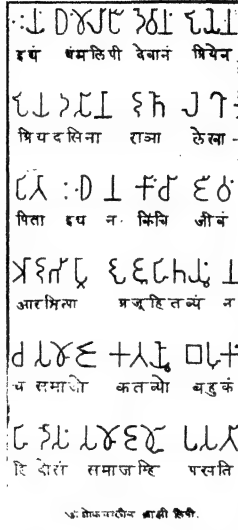 𑀇𑀬𑀁 𑀥𑀁𑀫𑀮𑀺𑀧𑀻 𑀤𑁂𑀯𑀸𑀦𑀁 𑀧𑁆𑀭𑀺𑀬𑁂𑀦
इयं धंमलिपी देवानं प्रियेन
𑀧𑁆𑀭𑀺𑀬𑀤𑀲𑀺𑀦𑀸 𑀭𑀸𑀜𑀸 𑀮𑁂𑀔𑀸
प्रियदसिना राञा लेखा-
𑀧𑀺𑀢𑀸 𑀇𑀥 𑀦 𑀓𑀺𑀁𑀘𑀺 𑀚𑀻𑀯𑀁
पिता इध न किंचि जीवं
𑀆𑀭𑀪𑀺𑀧𑁆𑀢𑀸 𑀧𑁆𑀭𑀚𑀽𑀳𑀺𑀢𑀯𑁆𑀬𑀁 𑀦
आरभित्पा प्रजूहितव्यं न
𑀘 𑀲𑀫𑀸𑀚𑁄 𑀓𑀢𑀯𑁆𑀬𑁄 𑀩𑀳𑀼𑀓𑀁
च समाजो कतव्यो बहुकं
𑀳𑀺 𑀤𑁄𑀲𑀁 𑀲𑀫𑀸𑀚𑀫𑁆𑀳𑀺 𑀧𑀲𑀢𑀺
हि दोसं समाजम्हि पसति
ब्राह्मी लिपी.